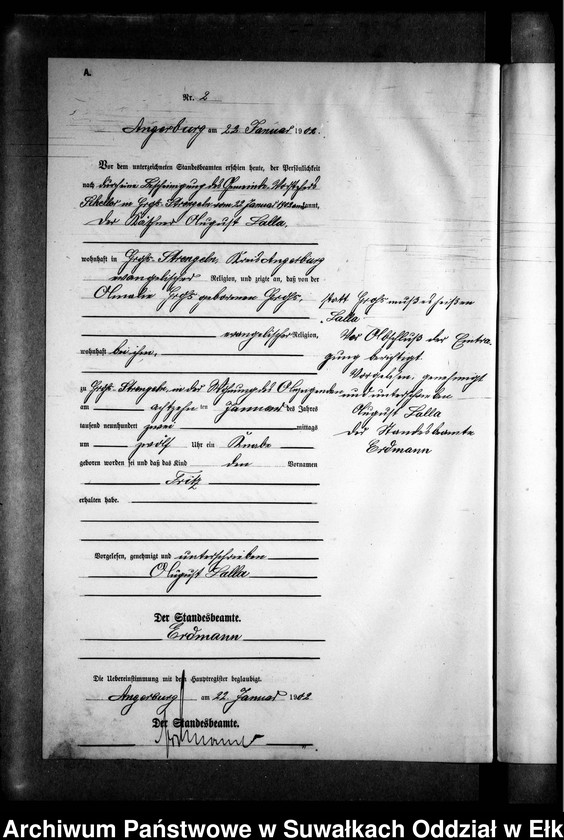 A.
Nr. 2
Angerburg am 22. Januar 1902.
Vor dem unterzeichneten Standesbeamten erschien heute, der Persönlichkeit
nach durch eine Bescheinigung des Gemeinde-Vorstehers
in Groß-Strengeln vom 22 Januar 1902 anerkannt,
der Käthner August Lalla,
wohnhaft in Groß-Strengeln, Kreis Angerburg
evangelischer Religion, und zeigte an, daß von der
Amalie Groß geborenen Groß,
evangelischer Religion,
wohnhaft bei ihm,
zu Groß-Strengeln, in der Wohnung des Anzeigenden
am achtzehn ten Januar des Jahres
tausend neunhundert zwei mittags
um zwölf Uhr ein Knabe
geboren worden sei und daß das Kind den Vornamen
Fritz
erhalten habe.
Vorgelesen, genehmigt und unterschrieben
August Lalla
Der Standesbeamte.
Erdmann
Die Uebereinstimmung mit dem Hauptregister beglaubigt.
Angerburg am 22. Januar 1902
Der Standesbeamte.
Erdmann
statt Groß muß es heißen
Lalla
Vor Abschluß der Eintra-
gung berichtigt.
Vorgelesen, genehmigt
und unterschrieben
August Lalla
Der Standesbeamte
Erdmann
Archiwum Państwowe w Suwałkach Oddział w Ełk